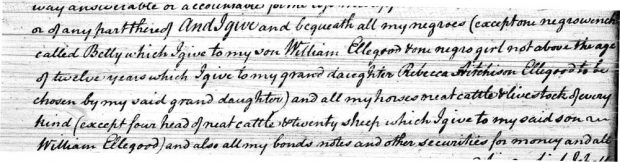 way answerable or accountable for
or of any part thereof And I give and bequeath all my negroes (except one negro wench
called Betty which I give to my son William Ellegood & one negro girl not above the age
of twelve years which I give to my grand daughter Rebecca Aitchison Ellegood to be
chosen by my said grand daughter) and all my horses neat cattle & live stock of every
kind (except four head of neat cattle & twenty sheep which I give to my said son
William Ellegood) and also all my bonds notes and other securities for money and all